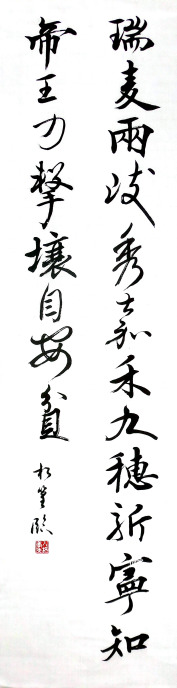 瑞麦兩岐秀嘉禾九穗新寧知
帝王力擊壤自安貧
臨